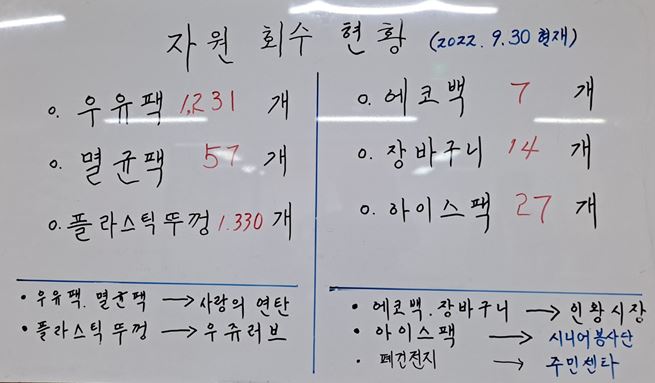 자원 회수 현황 (2022. 9.30 현재)
o. 우유팩 1,231 개
o. 멸균팩 57 개
o. 플라스틱뚜껑 1.330 개
o. 에코백 7 개
o. 장바구니 14 개
o. 아이스팩 27 개
• 우유팩. 멸균팩 → 사랑의 연탄
• 플라스틱 뚜껑 → 우쥬러브
• 에코백. 장바구니 → 인왕시장
• 아이스팩 → 시니어봉사단
• 폐건전지 → 주민센타